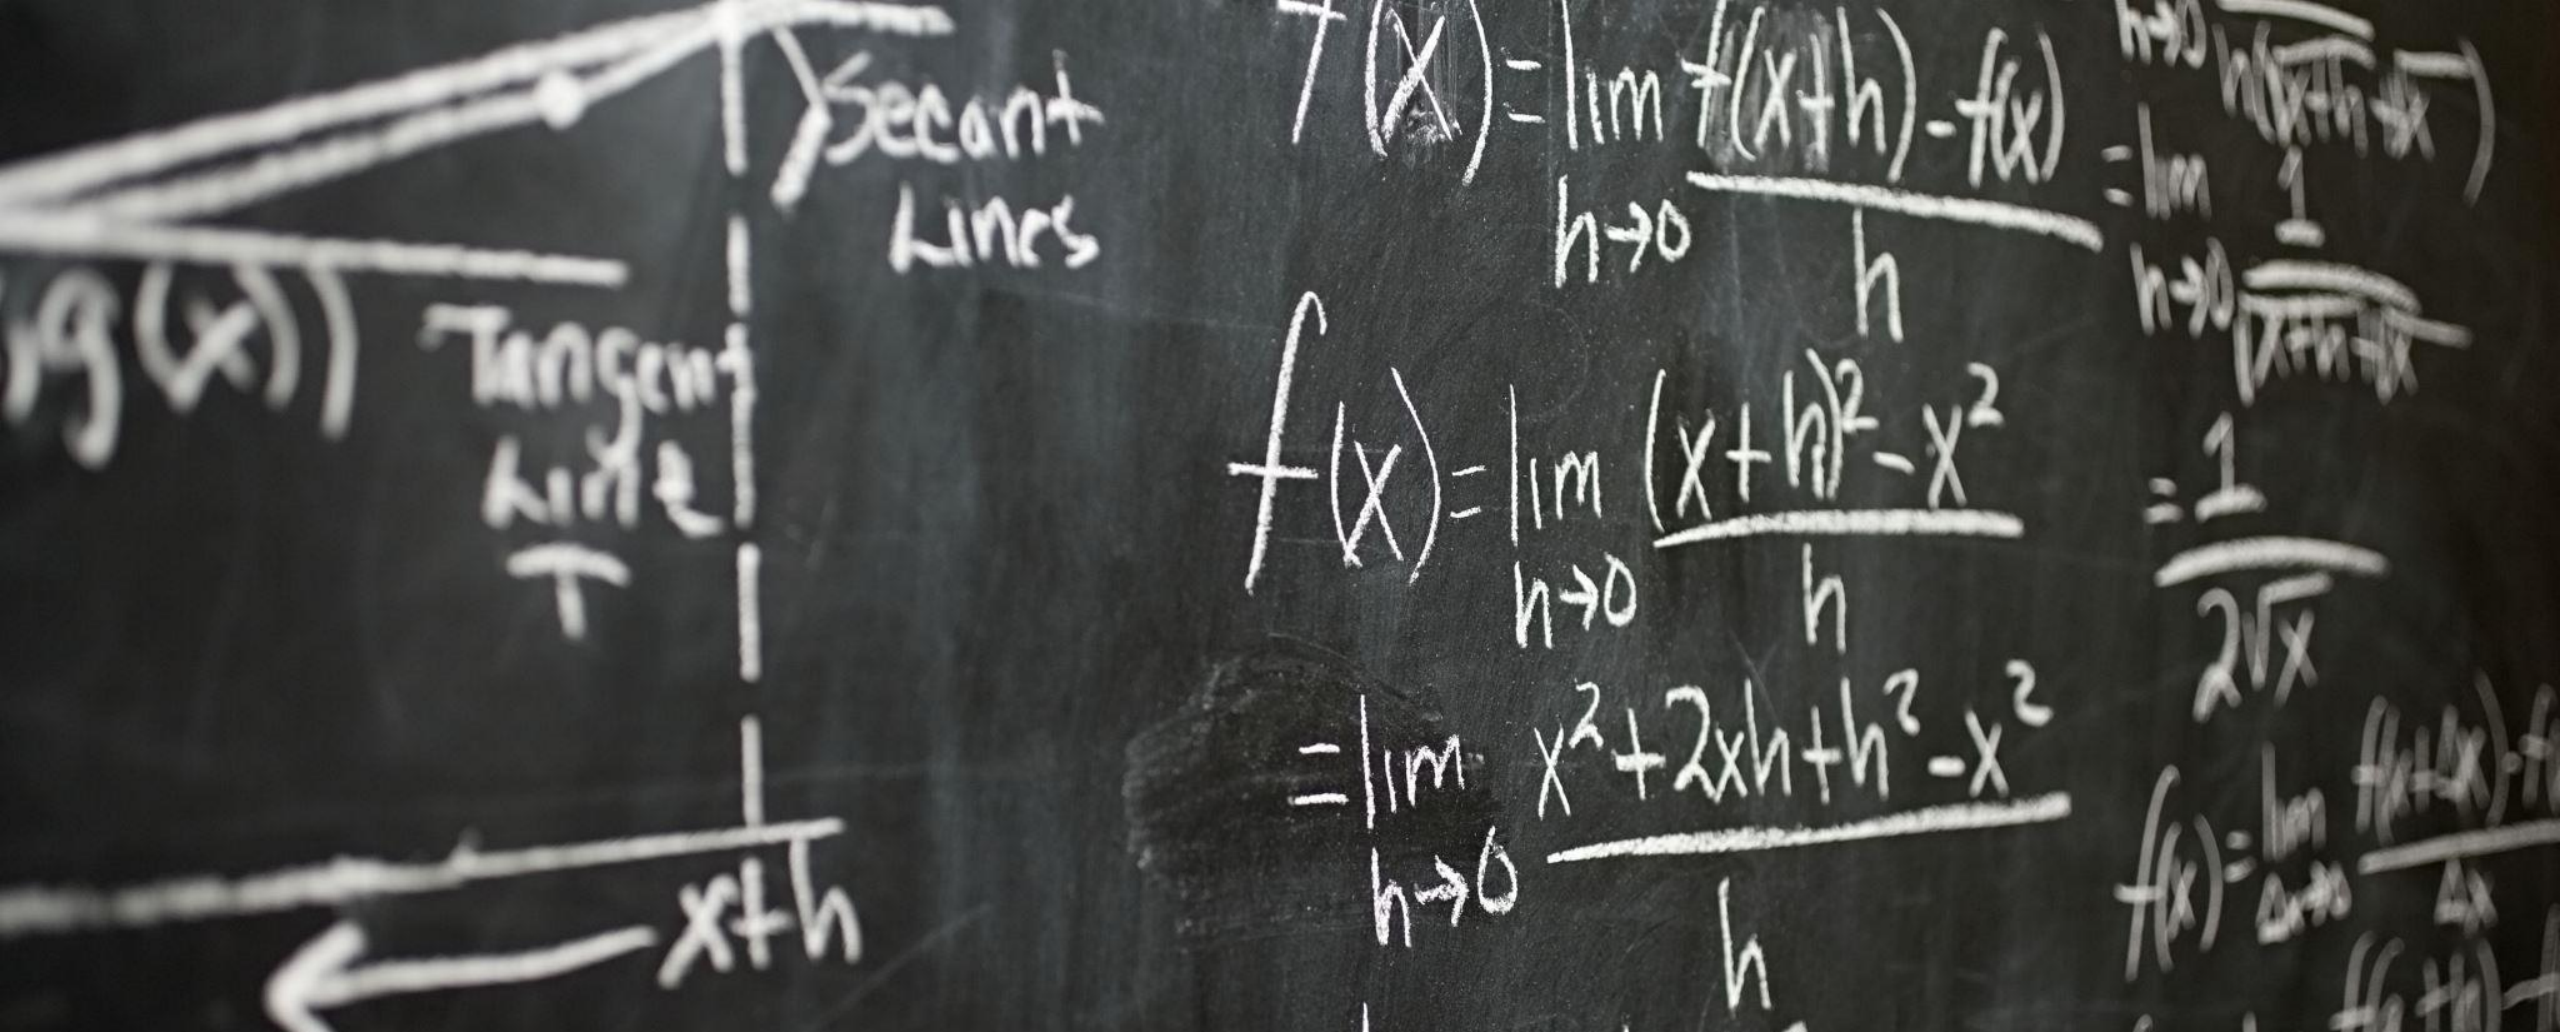 Secant
Lines
g(x))
Tangent
Line
T
x+h
f(x) = lim f(x+h) - f(x)
h→0 h
f(x) = lim (x+h)² - x²
h→0 h
= lim x² + 2xh + h² - x²
h→0 h
h→0 h(√x+h + √x)
= lim 1
h→0 √x+h + √x
= 1
2√x
f(x) = lim f(x+Δx) - f
Δx→0 Δx